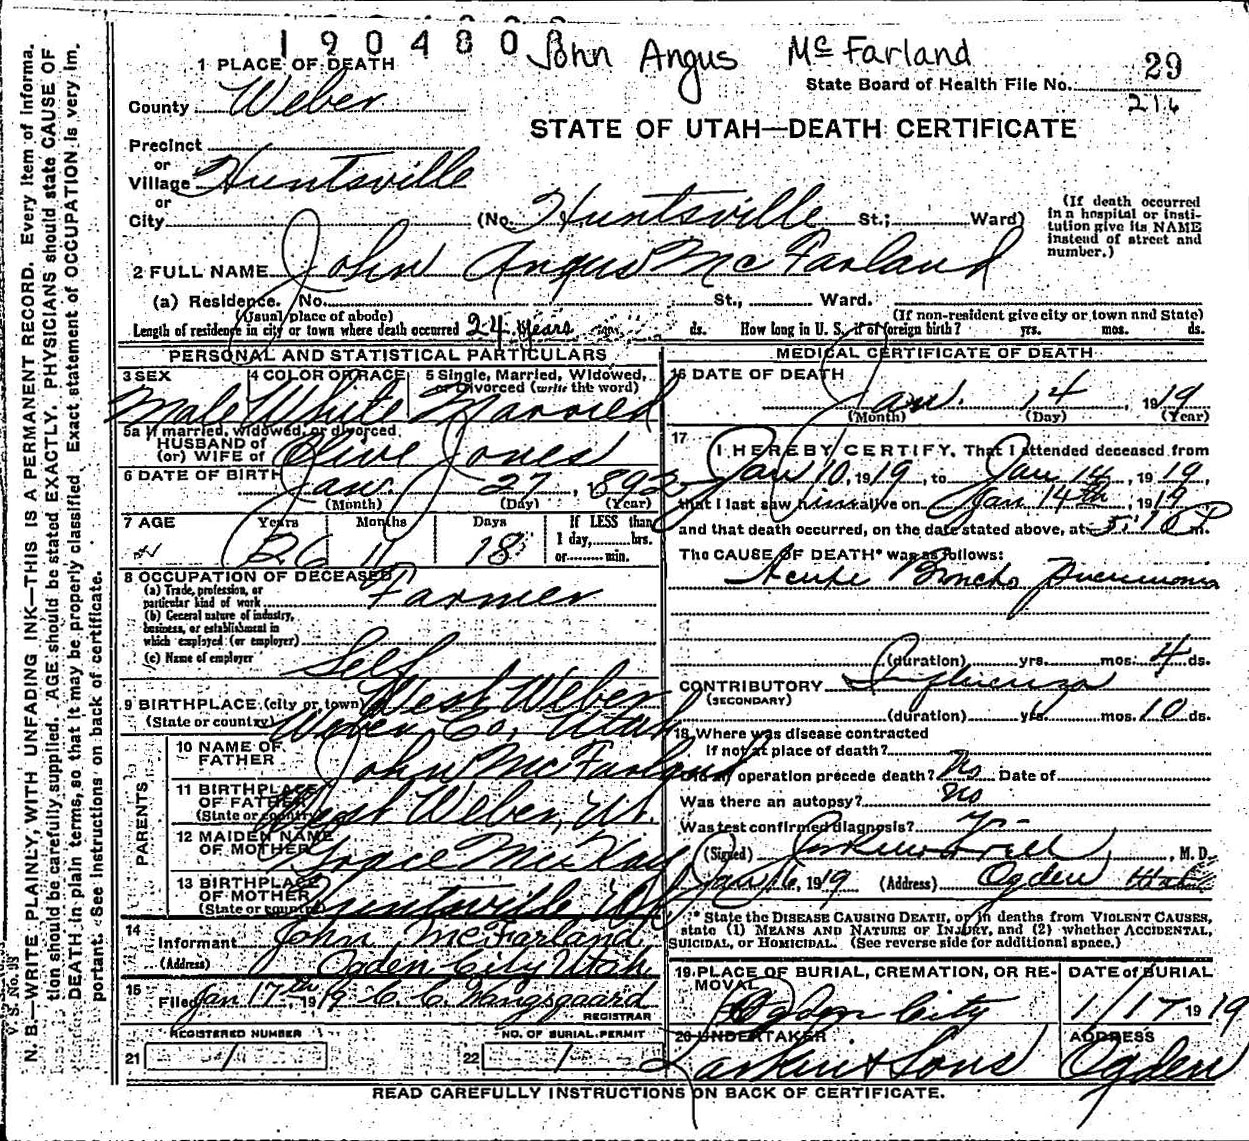 1904800
John Angus McFarland
1 PLACE OF DEATH
29
State Board of Health File No.
216
County Weber
STATE OF UTAH—DEATH CERTIFICATE
Precinct
or
Village Huntsville
or
City (No. Huntsville St.; Ward)
(If death occurred in a hospital or institution give its NAME instead of street and number.)
2 FULL NAME John Angus McFarland
(a) Residence. No. St., Ward.
(Usual place of abode) (If non-resident give city or town and State)
Length of residence in city or town where death occurred 24 years ds. How long in U. S. if of foreign birth? yrs. mos. ds.
PERSONAL AND STATISTICAL PARTICULARS
3 SEX 4 COLOR OR RACE 5 Single, Married, Widowed, or Divorced (write the word)
Male White Married
5a If married, widowed, or divorced
HUSBAND of
(or) WIFE of Olive Jones
6 DATE OF BIRTH Jan. 27, 1892
(Month) (Day) (Year)
7 AGE Years Months Days If LESS than
1 day, hrs.
or min.
26 11 18
8 OCCUPATION OF DECEASED
(a) Trade, profession, or
particular kind of work Farmer
(b) General nature of industry,
business, or establishment in
which employed (or employer)
(c) Name of employer Self
9 BIRTHPLACE (city or town) West Weber
(State or country) Weber Co, Utah
PARENTS
10 NAME OF
FATHER John McFarland
11 BIRTHPLACE
OF FATHER
(State or country) West Weber, Ut.
12 MAIDEN NAME
OF MOTHER Grace McKay
13 BIRTHPLACE
OF MOTHER
(State or country) Huntsville, Ut
14 Informant John McFarland
(Address) Ogden City Utah
15 Filed Jan 17th, 1919 C. C. Wangsgaard
REGISTRAR
REGISTERED NUMBER NO. OF BURIAL PERMIT
21 1 22 1
MEDICAL CERTIFICATE OF DEATH
16 DATE OF DEATH
Jan. 14, 1919
(Month) (Day) (Year)
17 I HEREBY CERTIFY, That I attended deceased from
Jan 10, 1919, to Jan 14, 1919,
that I last saw him alive on Jan 14th, 1919
and that death occurred, on the date stated above, at 5:10 P m.
The CAUSE OF DEATH* was as follows:
Acute Broncho pneumonia
(duration) yrs. mos. 4 ds.
CONTRIBUTORY Influenza
(SECONDARY)
(duration) yrs. mos. 10 ds.
18 Where was disease contracted
If not at place of death?
Did an operation precede death? No Date of
Was there an autopsy? No
Was test confirmed diagnosis?
(Signed) , M. D.
Jan 16, 1919 (Address) Ogden Utah
* State the DISEASE CAUSING DEATH, or in deaths from VIOLENT CAUSES,
state (1) MEANS AND NATURE OF INJURY, and (2) whether ACCIDENTAL,
SUICIDAL, or HOMICIDAL. (See reverse side for additional space.)
19 PLACE OF BURIAL, CREMATION, OR REMOVAL DATE of BURIAL
Ogden City 1/17 1919
20 UNDERTAKER ADDRESS
Larkin & Sons Ogden
READ CAREFULLY INSTRUCTIONS ON BACK OF CERTIFICATE.
N. B.—WRITE PLAINLY, WITH UNFADING INK—THIS IS A PERMANENT RECORD. Every item of informa-
tion should be carefully supplied. AGE should be stated EXACTLY. PHYSICIANS should state CAUSE OF
DEATH in plain terms, so that it may be properly classified. Exact statement of OCCUPATION is very im-
portant. See instructions on back of certificate.